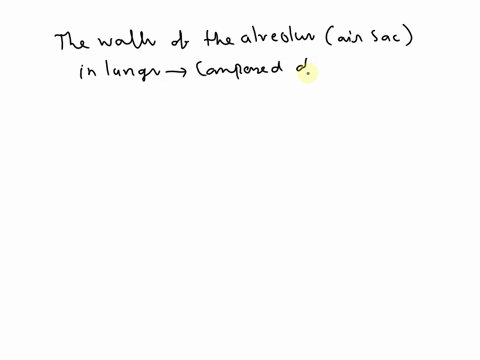 The walls of the alveolus (air sac)
in lungs → Composed of